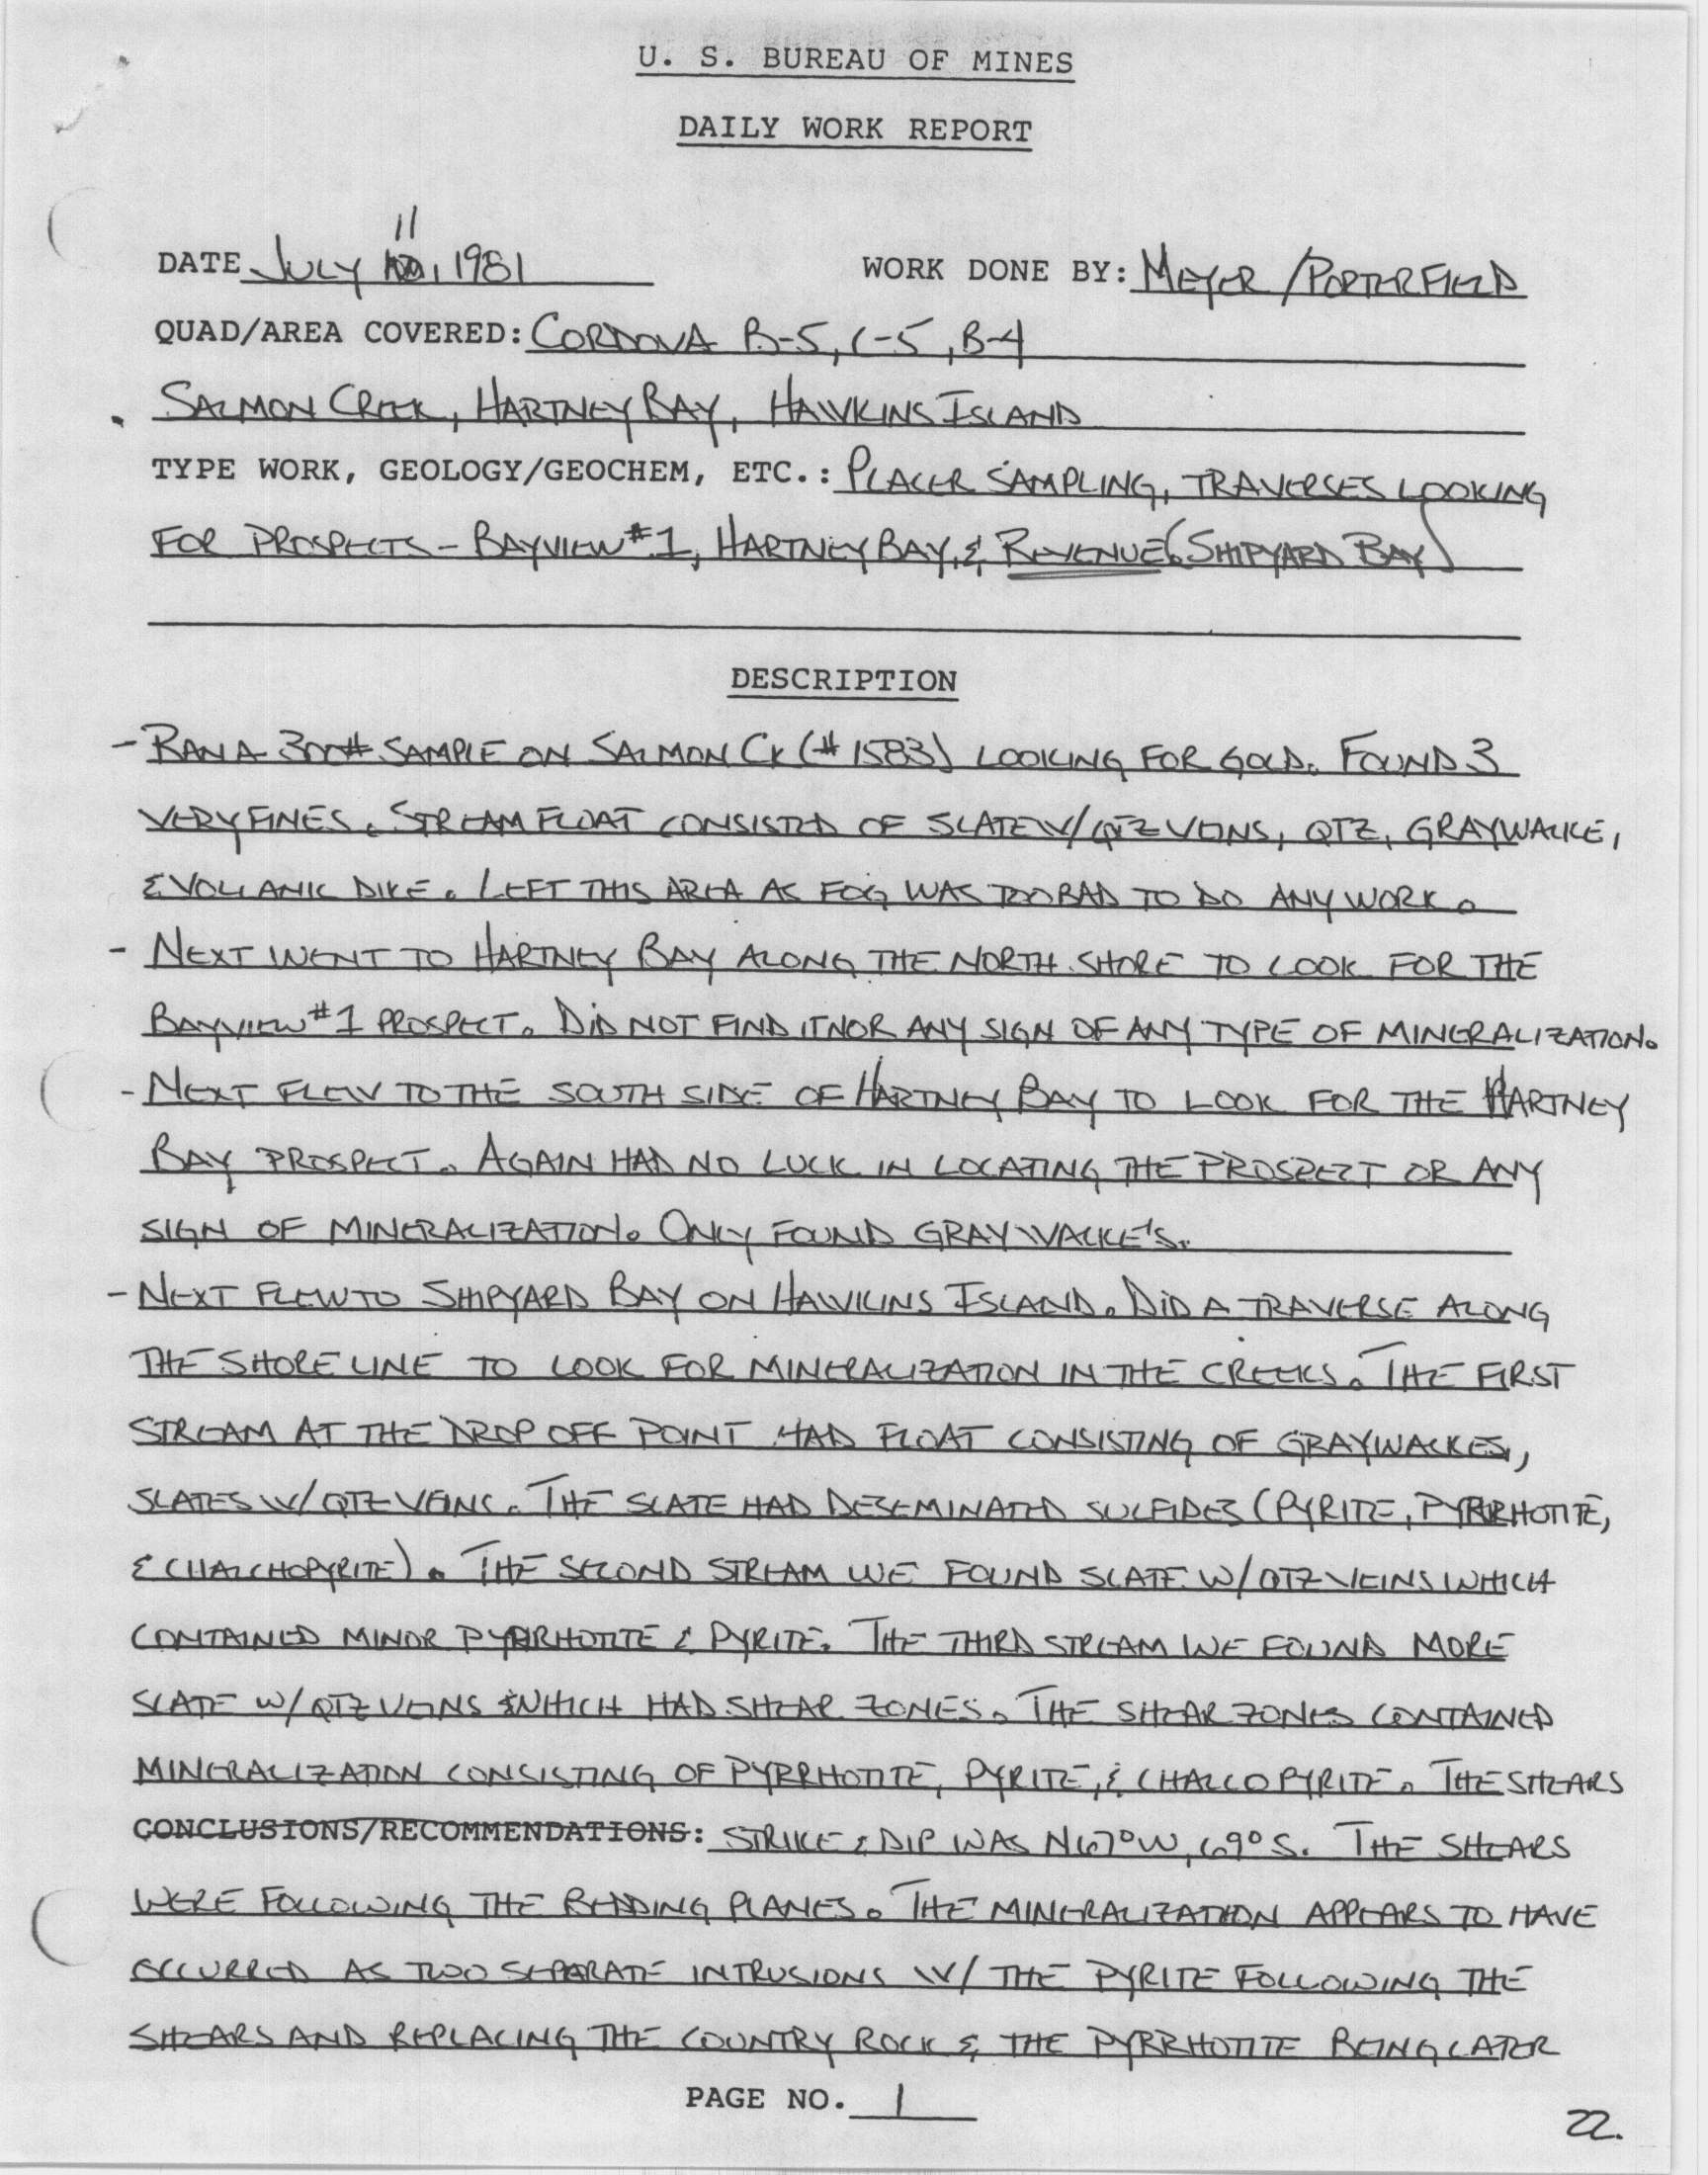 U. S. BUREAU OF MINES
DAILY WORK REPORT
11
DATE JULY 10, 1981 WORK DONE BY: MEYER/PORTERFIELD
QUAD/AREA COVERED: CORDOVA B-5, C-5, B-4
SALMON CREEK, HARTNEY BAY, HAWKINS ISLAND
TYPE WORK, GEOLOGY/GEOCHEM, ETC.: PLACER SAMPLING, TRAVERSES LOOKING
FOR PROSPECTS - BAYVIEW #1, HARTNEY BAY, & REVENUE (SHIPYARD BAY)
DESCRIPTION
- RAN A 300# SAMPLE ON SALMON CK (#1583) LOOKING FOR GOLD. FOUND 3
VERY FINES. STREAM FLOAT CONSISTED OF SLATE W/QTZ VEINS, QTZ, GRAYWACKE,
& VOLCANIC DIKE. LEFT THIS AREA AS FOG WAS TOO BAD TO DO ANY WORK.
- NEXT WENT TO HARTNEY BAY ALONG THE NORTH SHORE TO LOOK FOR THE
BAYVIEW #1 PROSPECT. DID NOT FIND IT NOR ANY SIGN OF ANY TYPE OF MINERALIZATION.
- NEXT FLEW TO THE SOUTH SIDE OF HARTNEY BAY TO LOOK FOR THE HARTNEY
BAY PROSPECT. AGAIN HAD NO LUCK IN LOCATING THE PROSPECT OR ANY
SIGN OF MINERALIZATION. ONLY FOUND GRAYWACKE'S.
- NEXT FLEW TO SHIPYARD BAY ON HAWKINS ISLAND. DID A TRAVERSE ALONG
THE SHORE LINE TO LOOK FOR MINERALIZATION IN THE CREEKS. THE FIRST
STREAM AT THE DROP OFF POINT HAD FLOAT CONSISTING OF GRAYWACKES,
SLATES W/QTZ VEINS. THE SLATE HAD DESEMINATED SULFIDES (PYRITE, PYRRHOTITE,
& CHALCHOPYRITE). THE SECOND STREAM WE FOUND SLATE W/QTZ VEINS WHICH
CONTAINED MINOR PYRRHOTITE & PYRITE. THE THIRD STREAM WE FOUND MORE
SLATE W/QTZ VEINS WHICH HAD SHEAR ZONES. THE SHEAR ZONES CONTAINED
MINERALIZATION CONSISTING OF PYRRHOTITE, PYRITE, & CHALCOPYRITE. THE SHEARS
CONCLUSIONS/RECOMMENDATIONS: STRIKE & DIP WAS N67°W, 69°S. THE SHEARS
WERE FOLLOWING THE BEDDING PLANES. THE MINERALIZATION APPEARS TO HAVE
OCCURRED AS TWO SEPARATE INTRUSIONS W/ THE PYRITE FOLLOWING THE
SHEARS AND REPLACING THE COUNTRY ROCK & THE PYRRHOTITE BEING LATER
PAGE NO. 1
22.